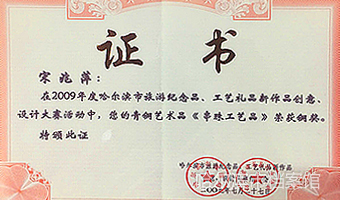 证书
宋兆萍：
在2009年度哈尔滨市旅游纪念品、工艺礼品新作品创意、
设计大赛活动中，您的青铜艺术品《串珠工艺品》荣获铜奖。
特颁此证
哈尔滨市旅游纪念品、工艺礼品新作品
二〇〇九年七月二十七日